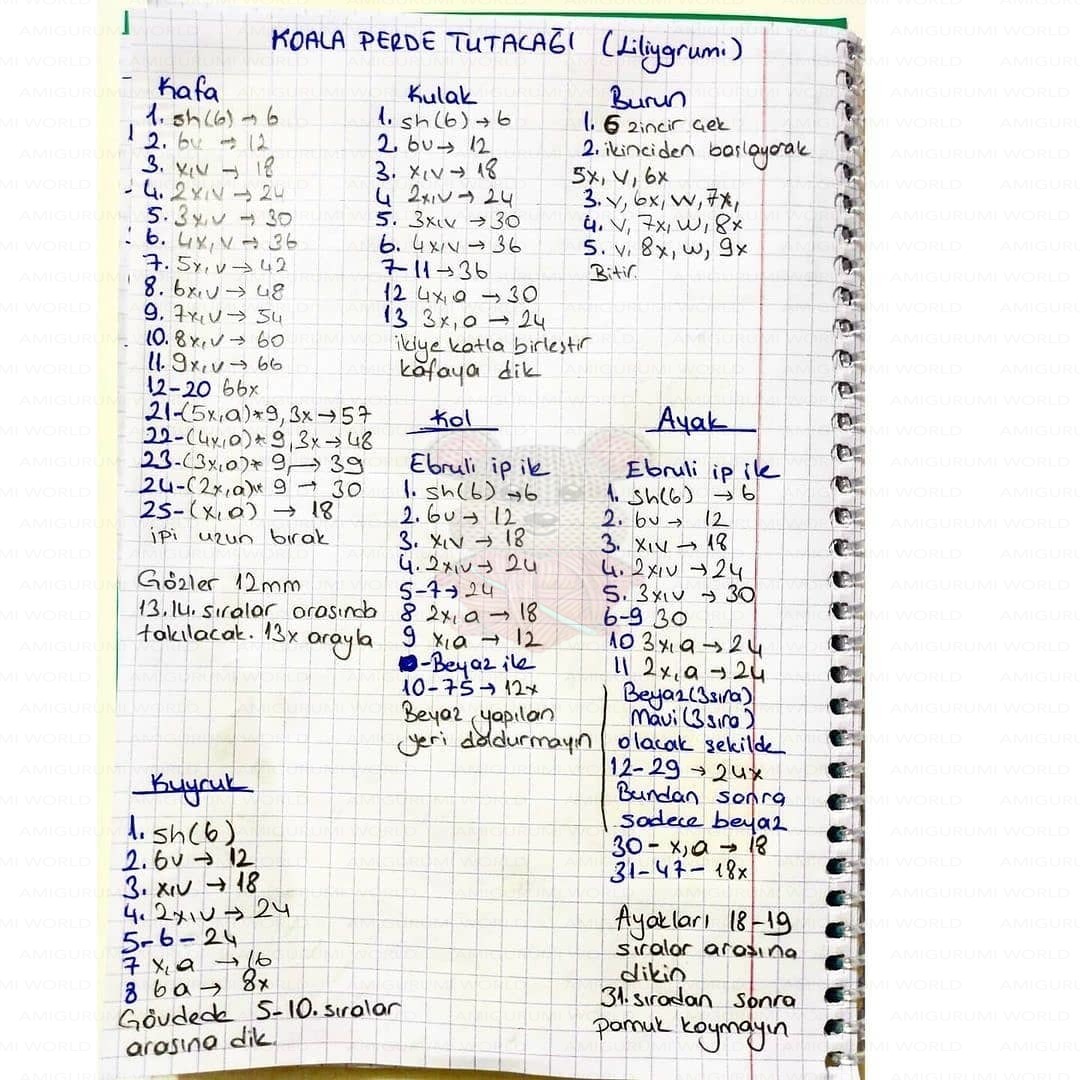 KOALA PERDE TUTACAĞI (Liliygrumi)
Kafa
1. sh(6) → 6
2. 6v → 12
3. x,v → 18
4. 2x,v → 24
5. 3x,v → 30
6. 4x,v → 36
7. 5x,v → 42
8. 6x,v → 48
9. 7x,v → 54
10. 8x,v → 60
11. 9x,v → 66
12-20 66x
21-(5x,a)*9,3x → 57
22-(4x,a)*9,3x → 48
23-(3x,a)*9, → 39
24-(2x,a)*9 → 30
25-(x,a) → 18
ipi uzun bırak
Gözler 12mm
13.14. sıralar arasında
takılacak. 13x arayla
Kulak
1. sh(6) → 6
2. 6v → 12
3. x,v → 18
4 2x,v → 24
5. 3x,v → 30
6. 4x,v → 36
7-11 → 36
12 4x,a → 30
13 3x,a → 24
ikiye katla birleştir
kafaya dik
Burun
1. 6 zincir çek
2. ikinciden başlayarak
5x, v, 6x
3. v, 6x, w, 7x,
4. v, 7x, w, 8x
5. v, 8x, w, 9x
Bitir.
Kol
Ebruli ip ile
1. sh(6) → 6
2. 6v → 12
3. x,v → 18
4. 2x,v → 24
5-7 → 24
8 2x,a → 18
9 x,a → 12
-Beyaz ile
10-75 → 12x
Beyaz yapılan
yeri doldurmayın
Ayak
Ebruli ip ile
1. sh(6) → 6
2. 6v → 12
3. x,v → 18
4. 2x,v → 24
5. 3x,v → 30
6-9 30
10 3x,a → 24
11 2x,a → 24
Beyaz(3sıra)
Mavi(3sıra)
olacak şekilde
12-29 → 24x
Bundan sonra
sadece beyaz
30- x,a → 18
31-47- 18x
Ayakları 18-19
sıralar arasına
dikin
31.sıradan sonra
pamuk koymayın
Kuyruk
1. sh(6)
2. 6v → 12
3. x,v → 18
4. 2x,v → 24
5-6-24
7 x,a → 16
8 6a → 8x
Gövdede 5-10. sıralar
arasına dik
AMIGURUMI WORLD